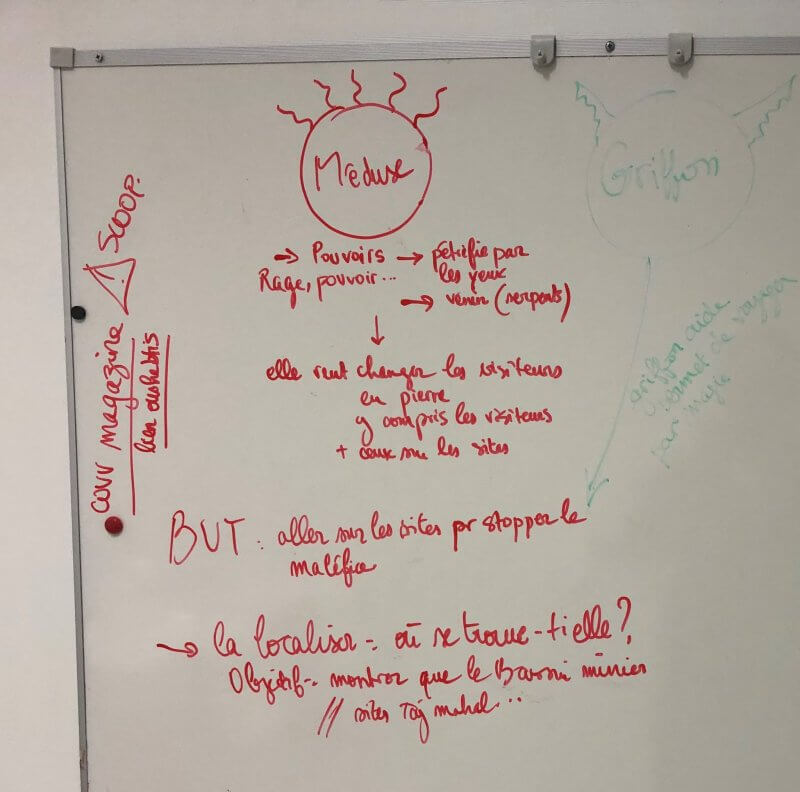 Méduse
Griffon
→ Pouvoirs → pétrifie par
Rage, pouvoir... les yeux
→ venin (serpents)
elle veut changer les visiteurs
en pierre
y compris les visiteurs
+ ceux sur les sites
BUT : aller sur les sites pr stopper le
maléfice
→ la localiser : où se trouve-t-elle ?
Objectif : montrer que le Bassin minier
// sites Taj mahal...
couv magazine
SCOOP.
lien
griffon aide
permet de voyager
par magie